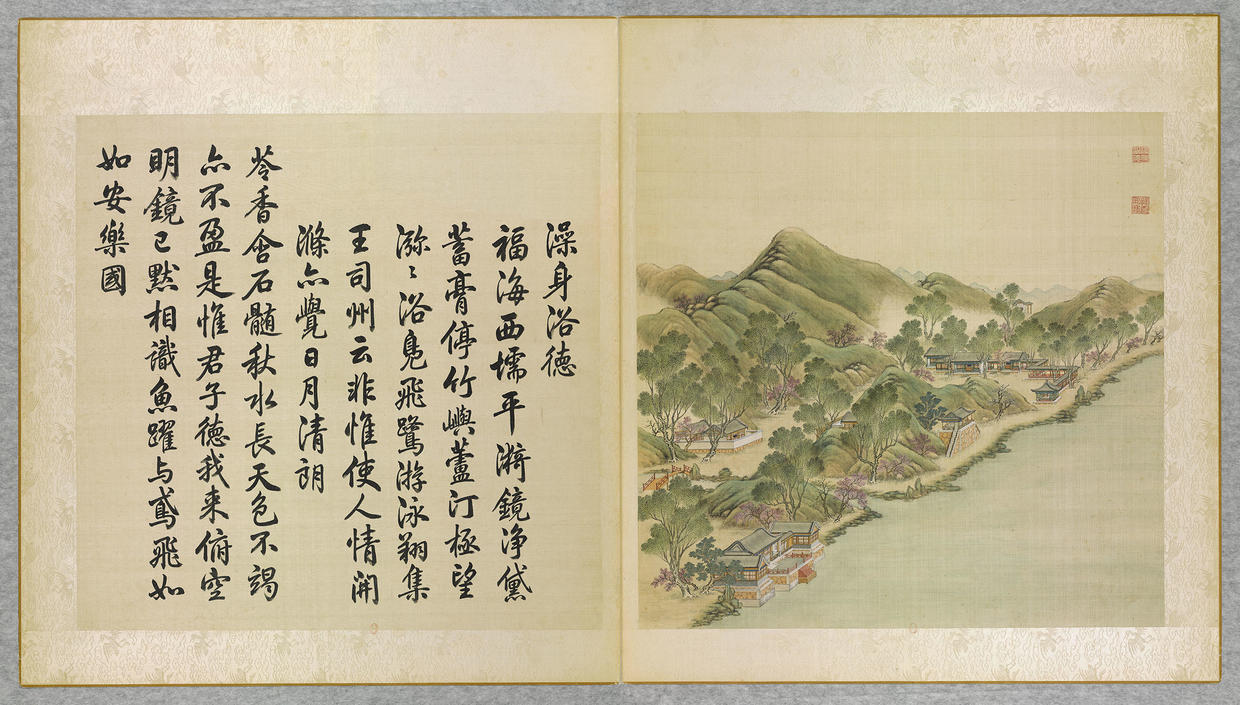 澡身浴德
福海西壖平漪鏡浄黛
蓄膏停竹嶼蘆汀極望
㳽〻浴鳧飛鷺游泳翔集
王司州云非惟使人情開
滌亦覺日月清朗
苓香含石髓秋水長天色不竭
亦不盈是惟君子德我来俯空
明鏡已默相識魚躍与鳶飛如
如安樂國